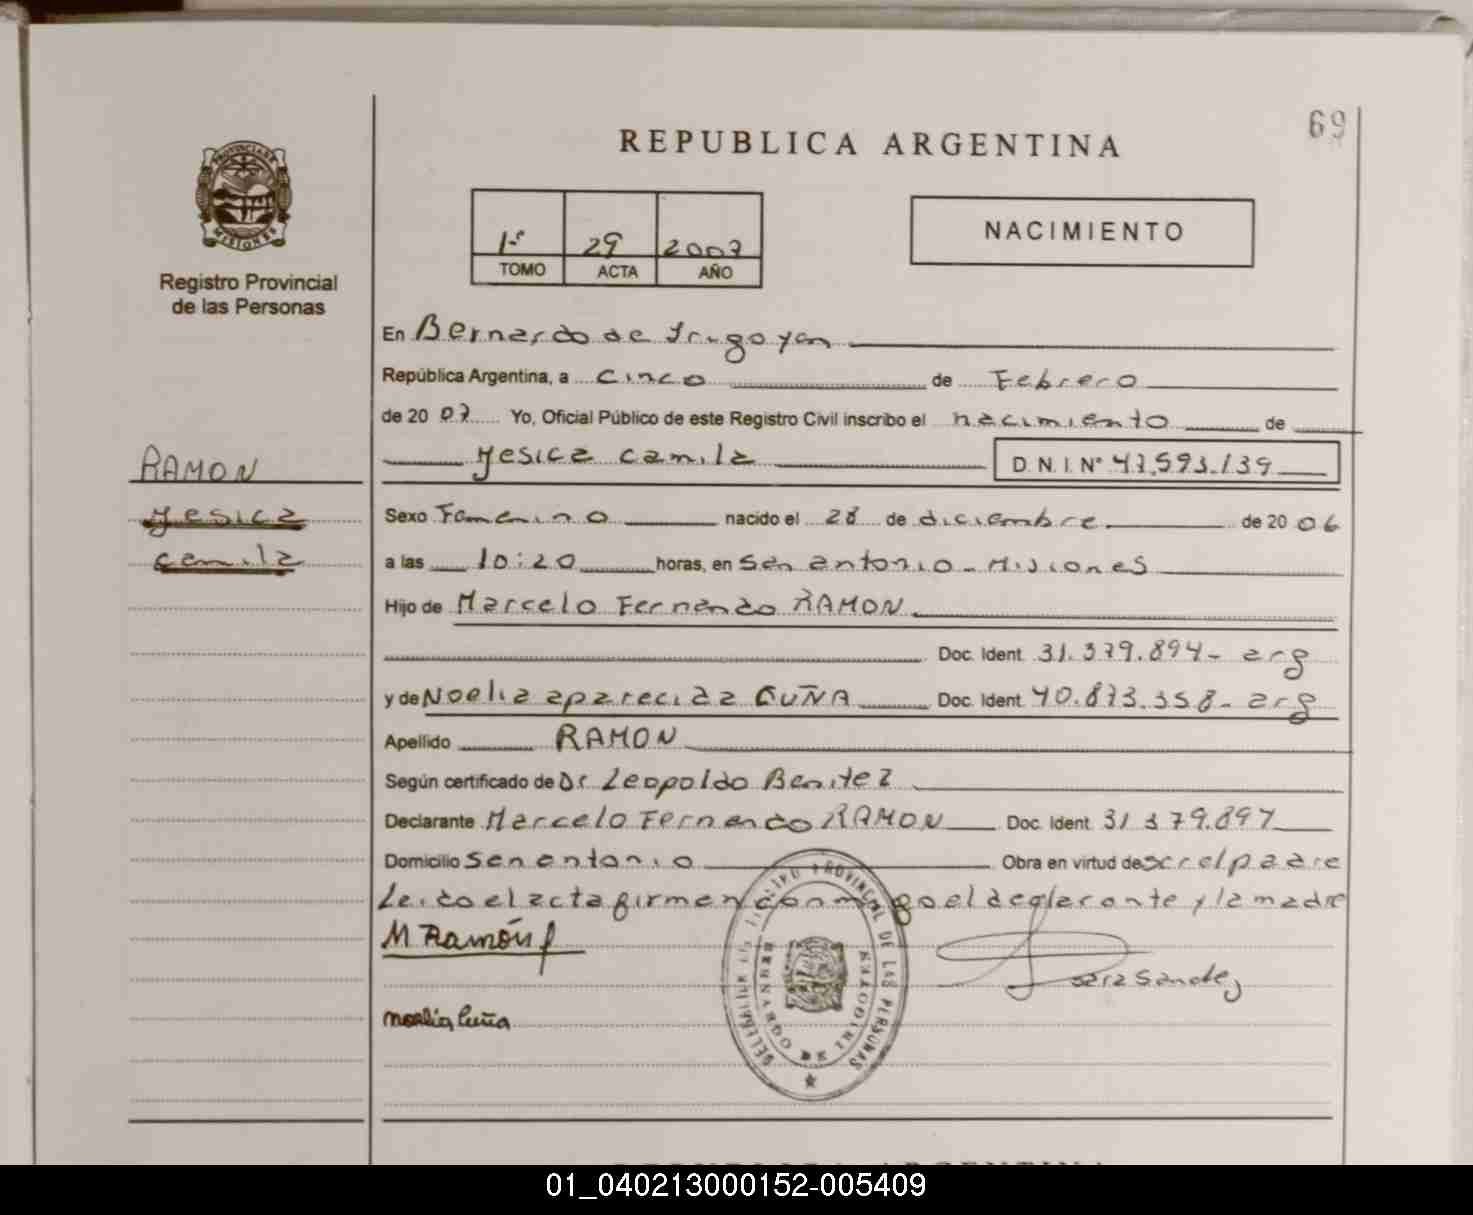 69
REPUBLICA ARGENTINA
PROVINCIA DE MISIONES
Registro Provincial
de las Personas
1º 29 2007
TOMO ACTA AÑO
NACIMIENTO
En Bernardo de Irigoyen
República Argentina, a cinco de Febrero
de 20 07 Yo, Oficial Público de este Registro Civil inscribo el nacimiento de
RAMON
Yesica camila D.N.I. Nº 47.593.139
Yesica
Sexo Femenino nacido el 28 de diciembre de 20 06
camila
a las 10:20 horas, en San antonio - Misiones
Hijo de Marcelo Fernando RAMON
Doc. Ident. 31.379.894- arg
y de Noelia aparecida CUÑA Doc. Ident. 40.873.358- arg
Apellido RAMON
Según certificado de Dr Leopoldo Benitez
Declarante Marcelo Fernando RAMON Doc. Ident. 31 379.894
Domicilio San antonio Obra en virtud de ser el padre
Leido el acta firman conmigo el declarante y la madre
M Ramón
Sara Sanchez
noelia Cuña
DELEGACION DEL REGISTRO PROVINCIAL DE LAS PERSONAS
BERNARDO DE IRIGOYEN
01_040213000152-005409